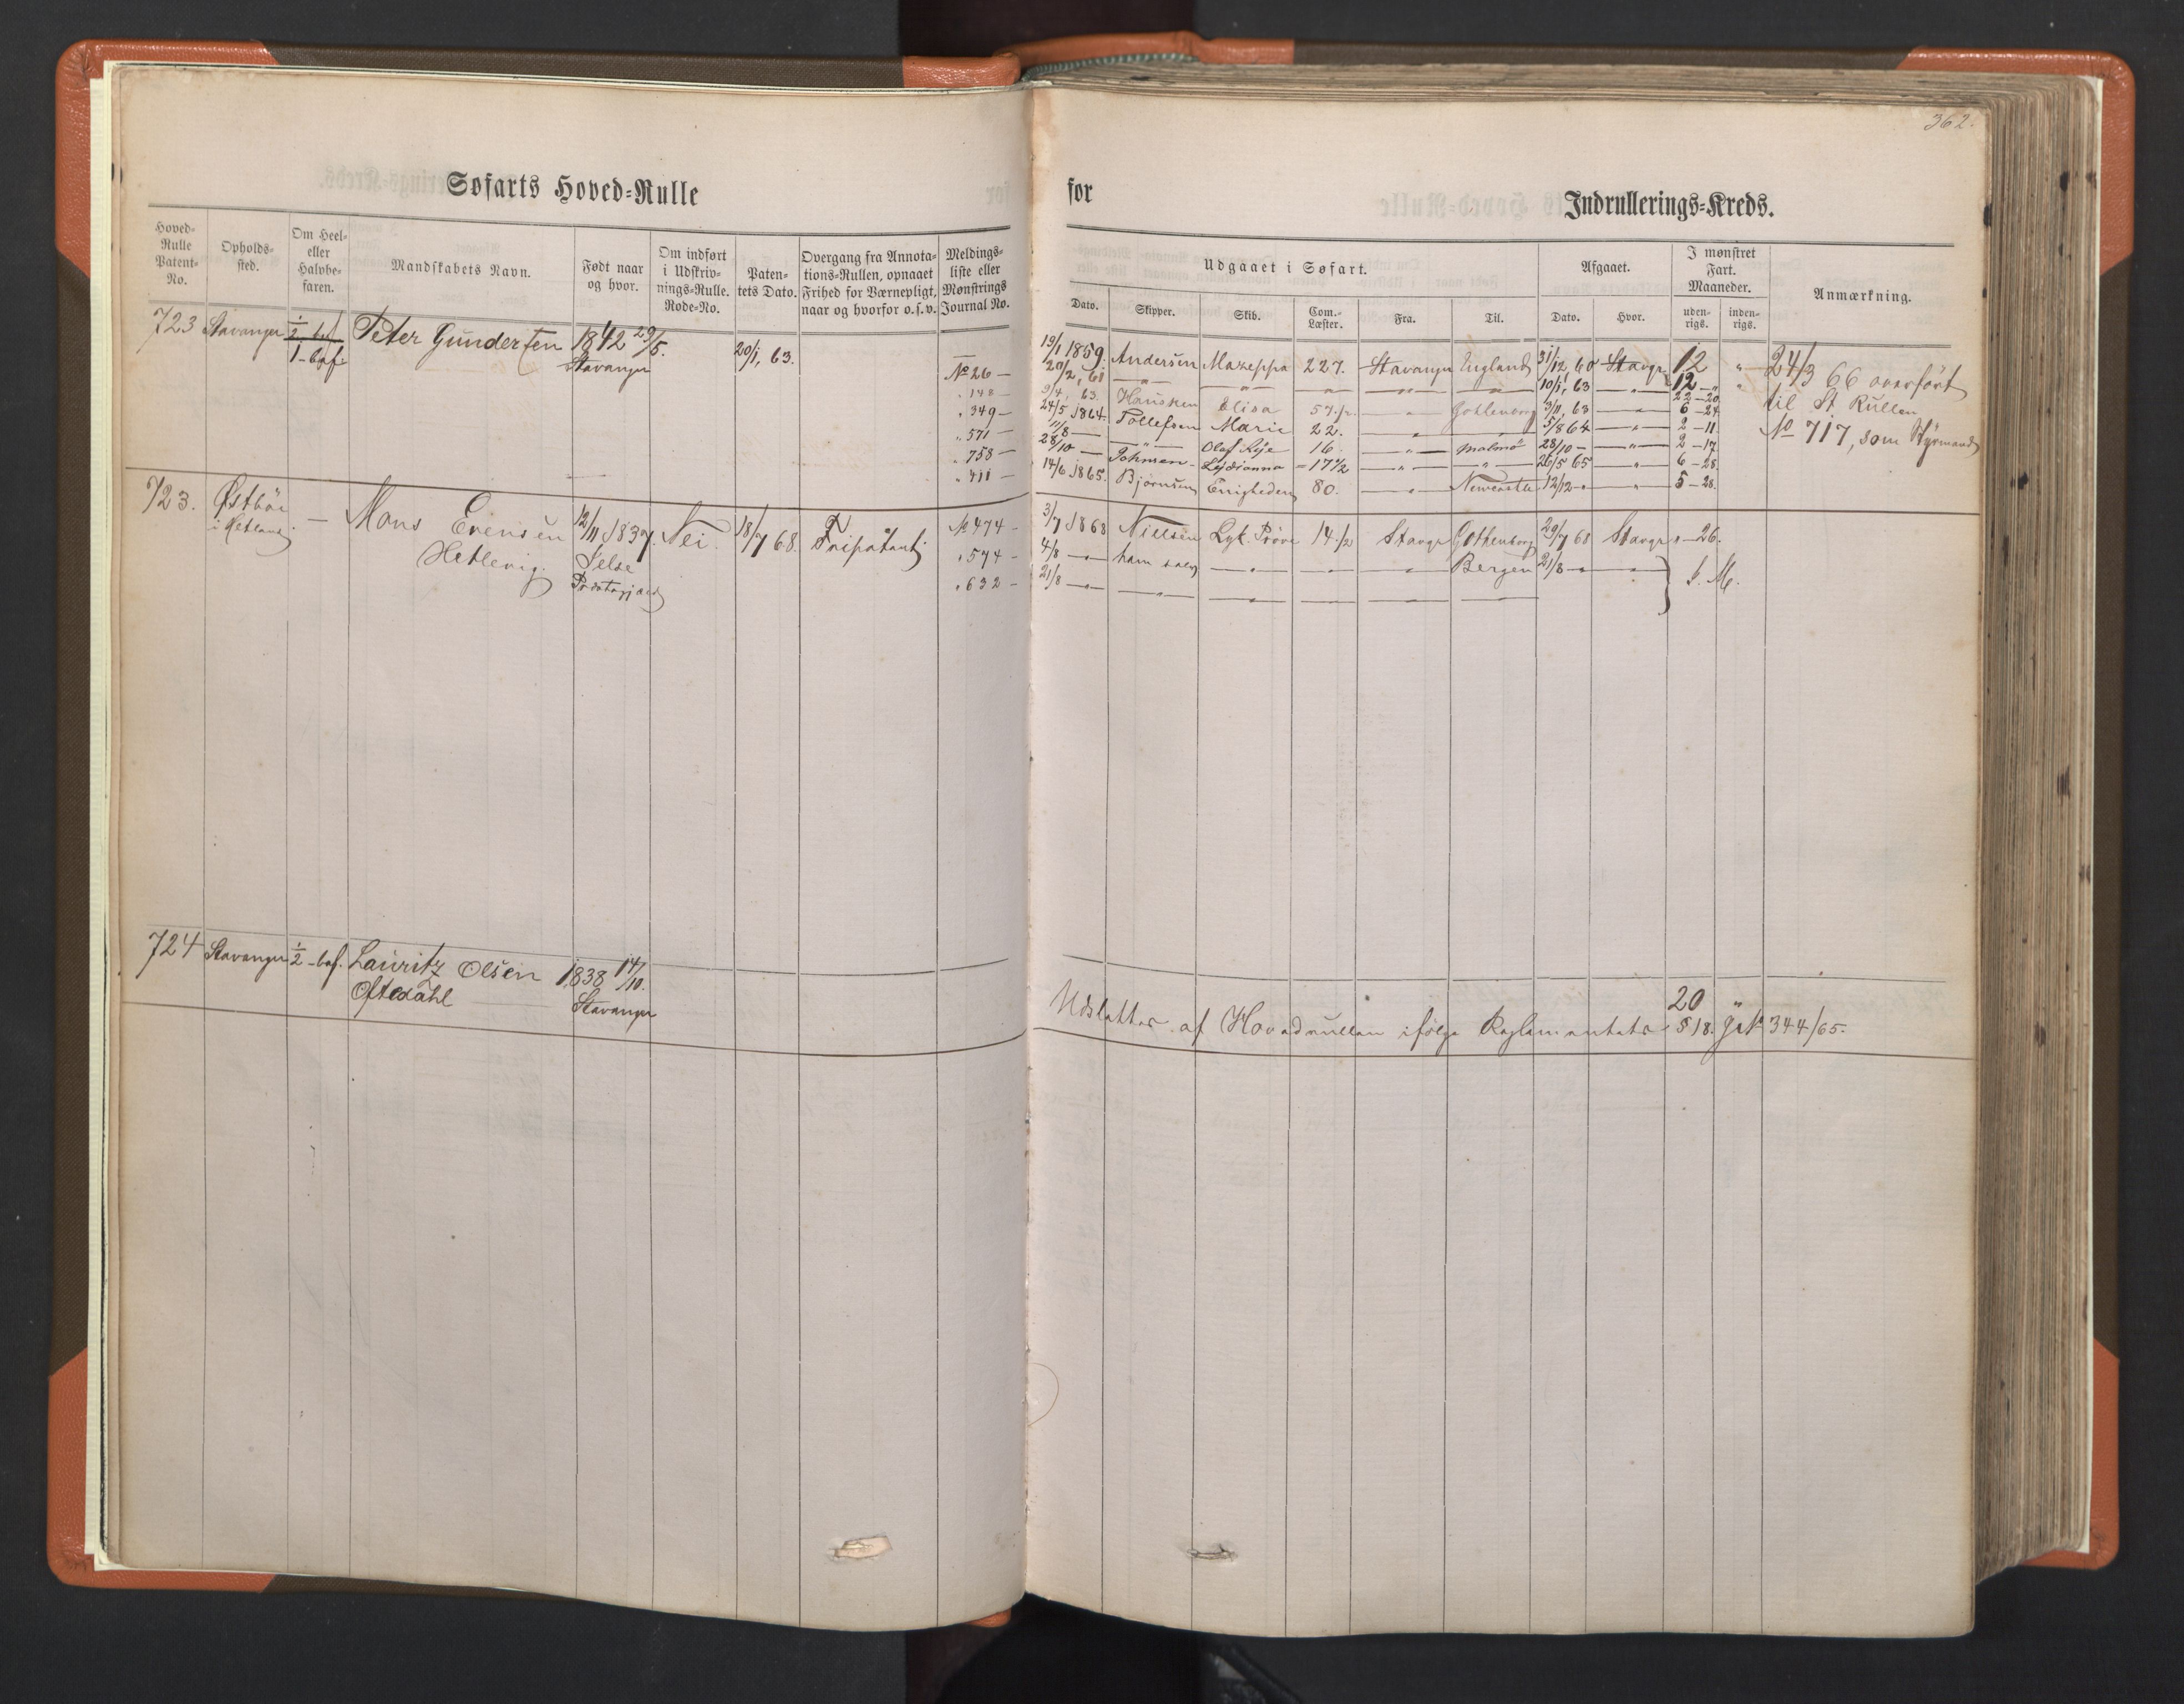 362.
Søfarts Hoved-Rulle
for Indrullerings-Kreds.
Hoved-Rulle Patent-No.
Opholds-sted.
Om Heel- eller Halvbe-faren.
Mandskabets Navn.
Født naar og hvor.
Om indført i Udskriv-nings-Rulle. Rode-No.
Paten-tets Dato.
Overgang fra Annota-tions-Rullen, opnaaet Frihed for Værnepligt, naar og hvorfor o. s. v.
Meldings-liste eller Mønstrings Journal No.
Udgaaet i Søfart.
Dato.
Skipper.
Skib.
Com.-Læster.
Fra.
Til.
Afgaaet.
Dato.
Hvor.
I mønstret Fart. Maaneder.
uden-rigs.
inden-rigs.
Anmærkning.
723 Stavanger 1/2 bef. Peter Gundersen 1842 29/5. 20/1, 63.
1-bef. Stavanger
No 26 — 19/1 1859. Andersen Mazeppa 227. Stavanger England 31/12, 60 Stavgr 12 "
" 148 — 20/2, 61 — " — — " — " " " 10/1, 63 — " — 12 — " "
" 349 — 9/4, 63. Hausken Elisa 57 1/2 — " — Gothenborg 3/11, 63 — " — 6 — 24
" 571 — 24/5 1864 Tollefsen Marie 22. — " — " 5/8 64 — " — 2 — 11
" 758 — 11/8 — — " — Olaf Rye 16 — " — Malmö 28/10 — — " — 2 — 17
28/10 — Johnsen — Lydianna — 17 1/2 — " — — " — 26/5 65 — " — 6 — 28
" 411 — 14/6 1865. Bjørnsen Enigheden 80. — " — Newcastle 12/12 — " — " — 5 — 28.
24/3 66 overført
til St Rullen
No 717, som Styrmand
723. Østbø i Hetland — Mons Evensen 12/11 1837. Nei. 18/7 68. Fripatent No 474 — 3/7 1868 Nielsen Lyk. Prøve 14 1/2 Stavgr Gothenborg 29/7 68 Stavgr " — 26.
Hetlevig. Jelse " 574 — 4/8 — " — ham selv — " — — " — — " — Bergen 21/8 — " — — " —
Præstegjæld " 632 — 21/8 — " — — " — — " —
724 Stavanger 1/2 - bef. Lauritz Olsen 1838 14/10.
Oftedahl Stavanger
20
Udslettes af Hovedrullen ifølge Reglementets § 18. 344/65.